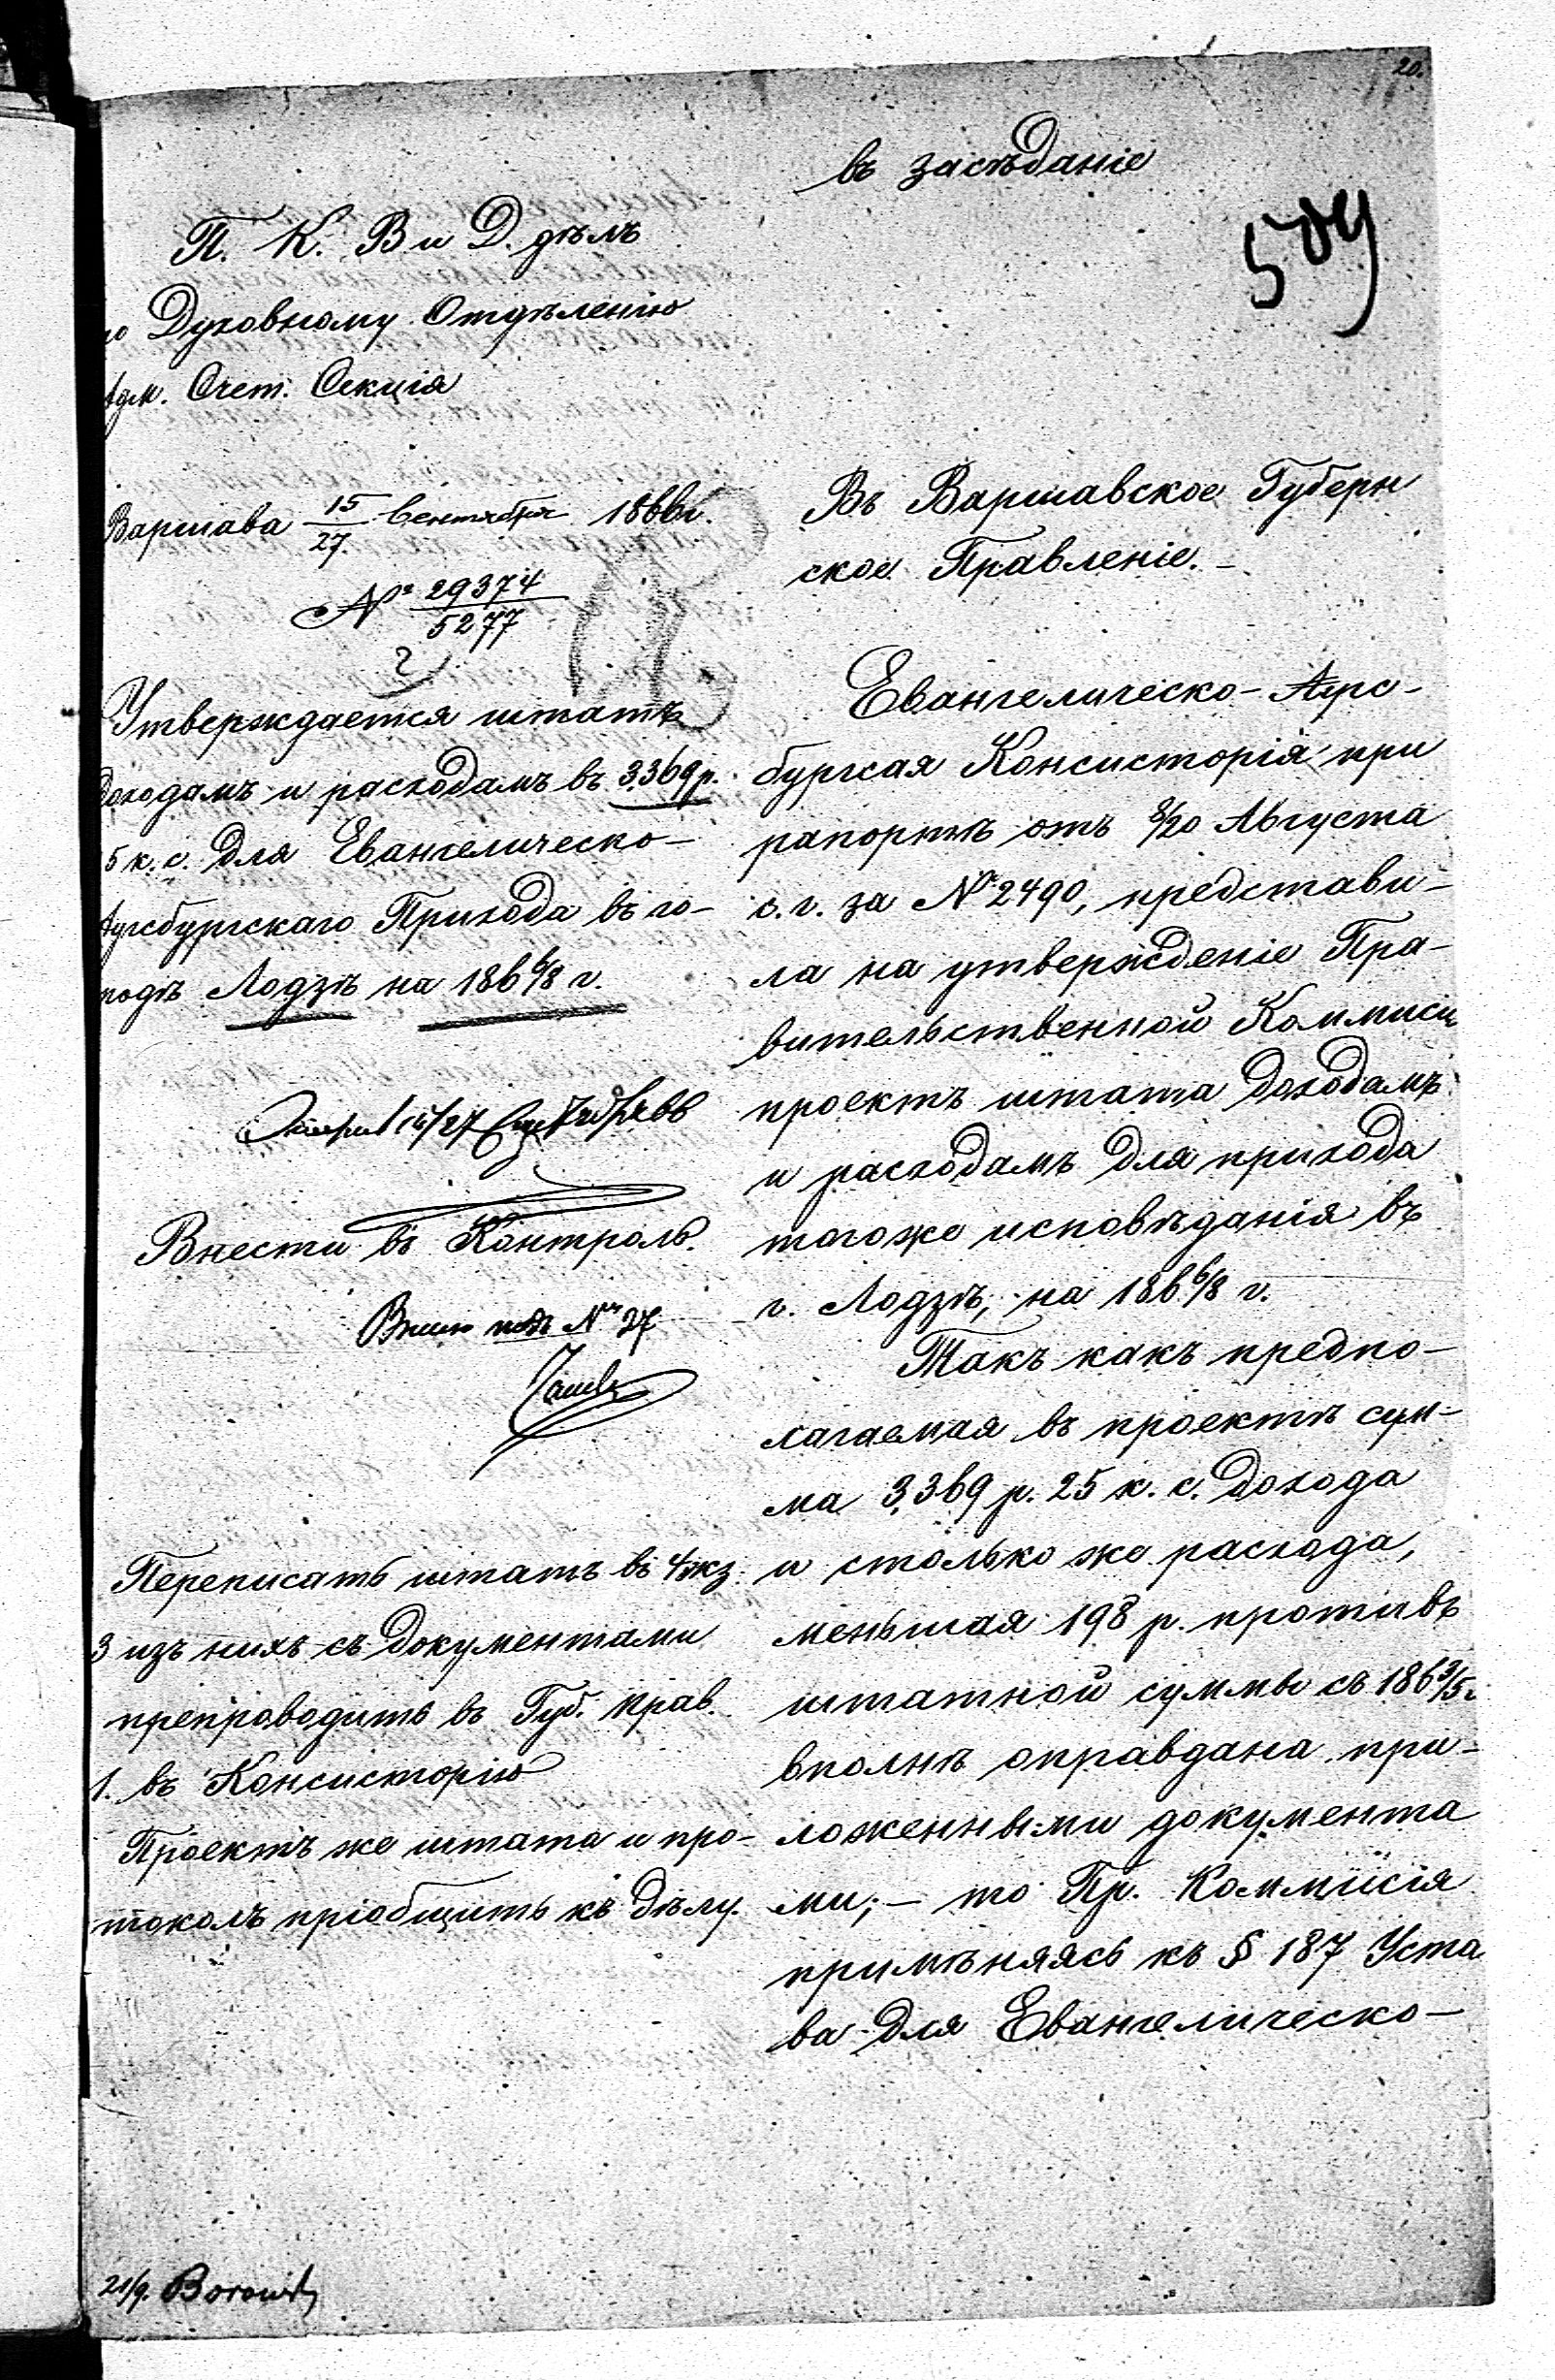 20.
въ засѣданіе
509
П. К. В и Д. дѣлъ
по Духовному Отдѣленію
Адм. Счет. Секція
Варшава 15/27 Сентября 1866 г.
№ 29374/5277
Утверждается штатъ
доходамъ и расходамъ въ 3,369 р.
5 к. с. для Евангелическо-
Аугсбургскаго Прихода въ го-
родѣ Лодзѣ на 186 6/8 г.
15/27
Внести въ Контроль.
подъ № 27
Переписать штатъ въ 4 экз.
3 изъ нихъ съ документами
препроводить въ Губ. Прав.
1. въ Консисторію
Проектъ же штата и про-
токолъ пріобщить къ дѣлу.
21/9.
Въ Варшавское Губерн
ское Правленіе.-
Евангелическо-Аугс-
бургская Консисторія при
рапортѣ отъ 8/20 Августа
с. г. за № 2490, представи-
ла на утвержденіе Пра-
вительственной Коммисіи
проектъ штата доходамъ
и расходамъ для прихода
тогоже исповѣданія въ
г. Лодзѣ, на 186 6/8 г.
Такъ какъ предпо-
лагаемая въ проектѣ сум-
ма 3,369 р. 25 к. с. дохода
и столько же расхода,
меньшая 198 р. противъ
штатной суммы съ 186 3/5 г.
вполнѣ оправдана при-
ложенными документа
ми;- то Пр. Коммисія
примѣняясь къ § 187 Уста
ва для Евангелическо-